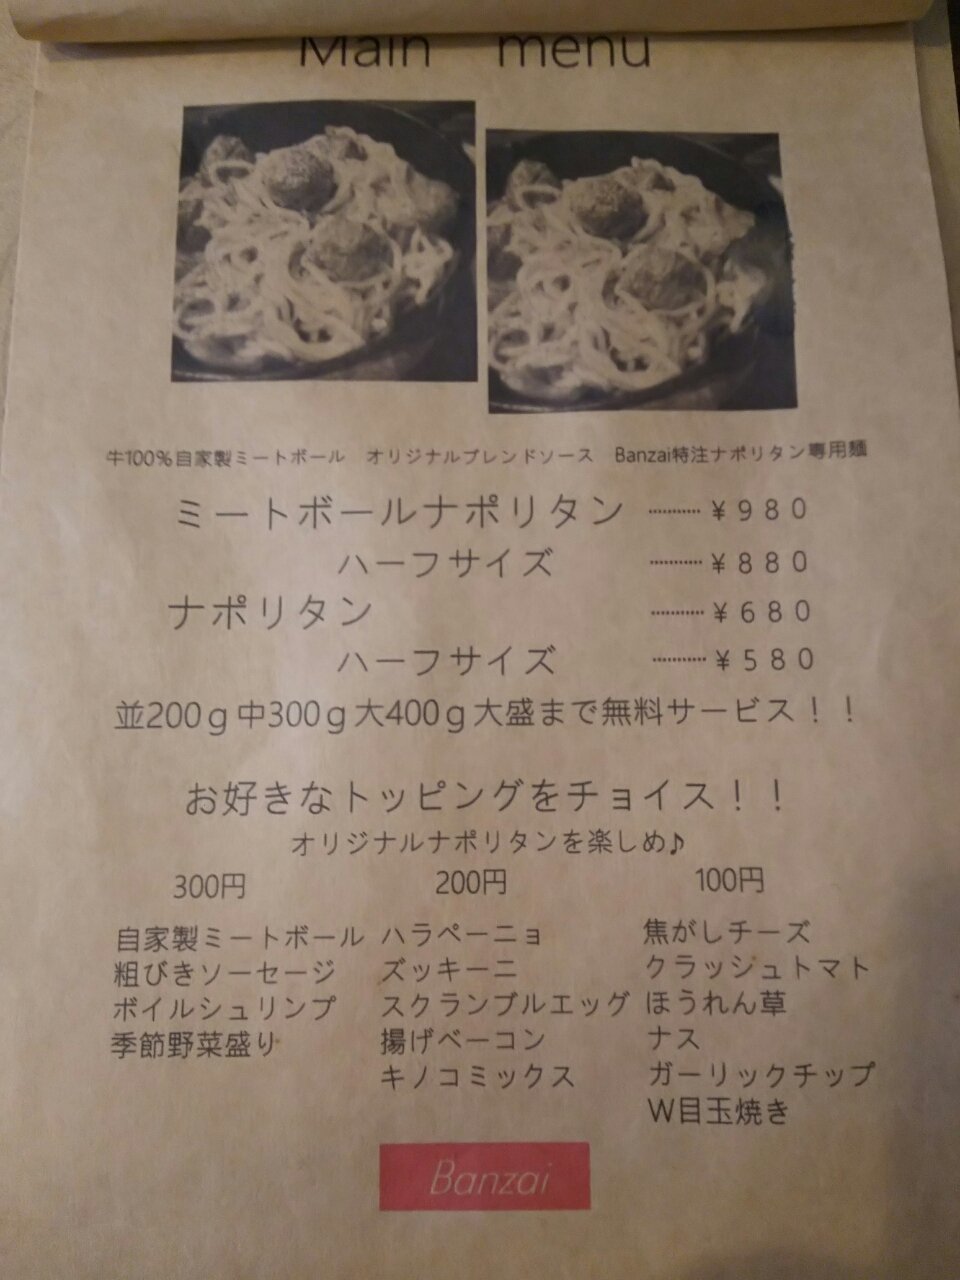 Main menu
牛100%自家製ミートボール オリジナルブレンドソース Banzai特注ナポリタン専用麺
ミートボールナポリタン ………… ¥980
ハーフサイズ ………… ¥880
ナポリタン ………… ¥680
ハーフサイズ ………… ¥580
並200g中300g大400g大盛まで無料サービス！！
お好きなトッピングをチョイス！！
オリジナルナポリタンを楽しめ♪
300円 200円 100円
自家製ミートボール ハラペーニョ 焦がしチーズ
粗びきソーセージ ズッキーニ クラッシュトマト
ボイルシュリンプ スクランブルエッグ ほうれん草
季節野菜盛り 揚げベーコン ナス
キノコミックス ガーリックチップ
W目玉焼き
Banzai